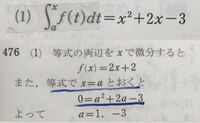 (1) ∫ₐˣ f(t)dt=x²+2x−3
476 (1) 等式の両辺を x で微分すると
f(x)=2x+2
また，等式で x=a とおくと
0=a²+2a−3
よって a=1, −3